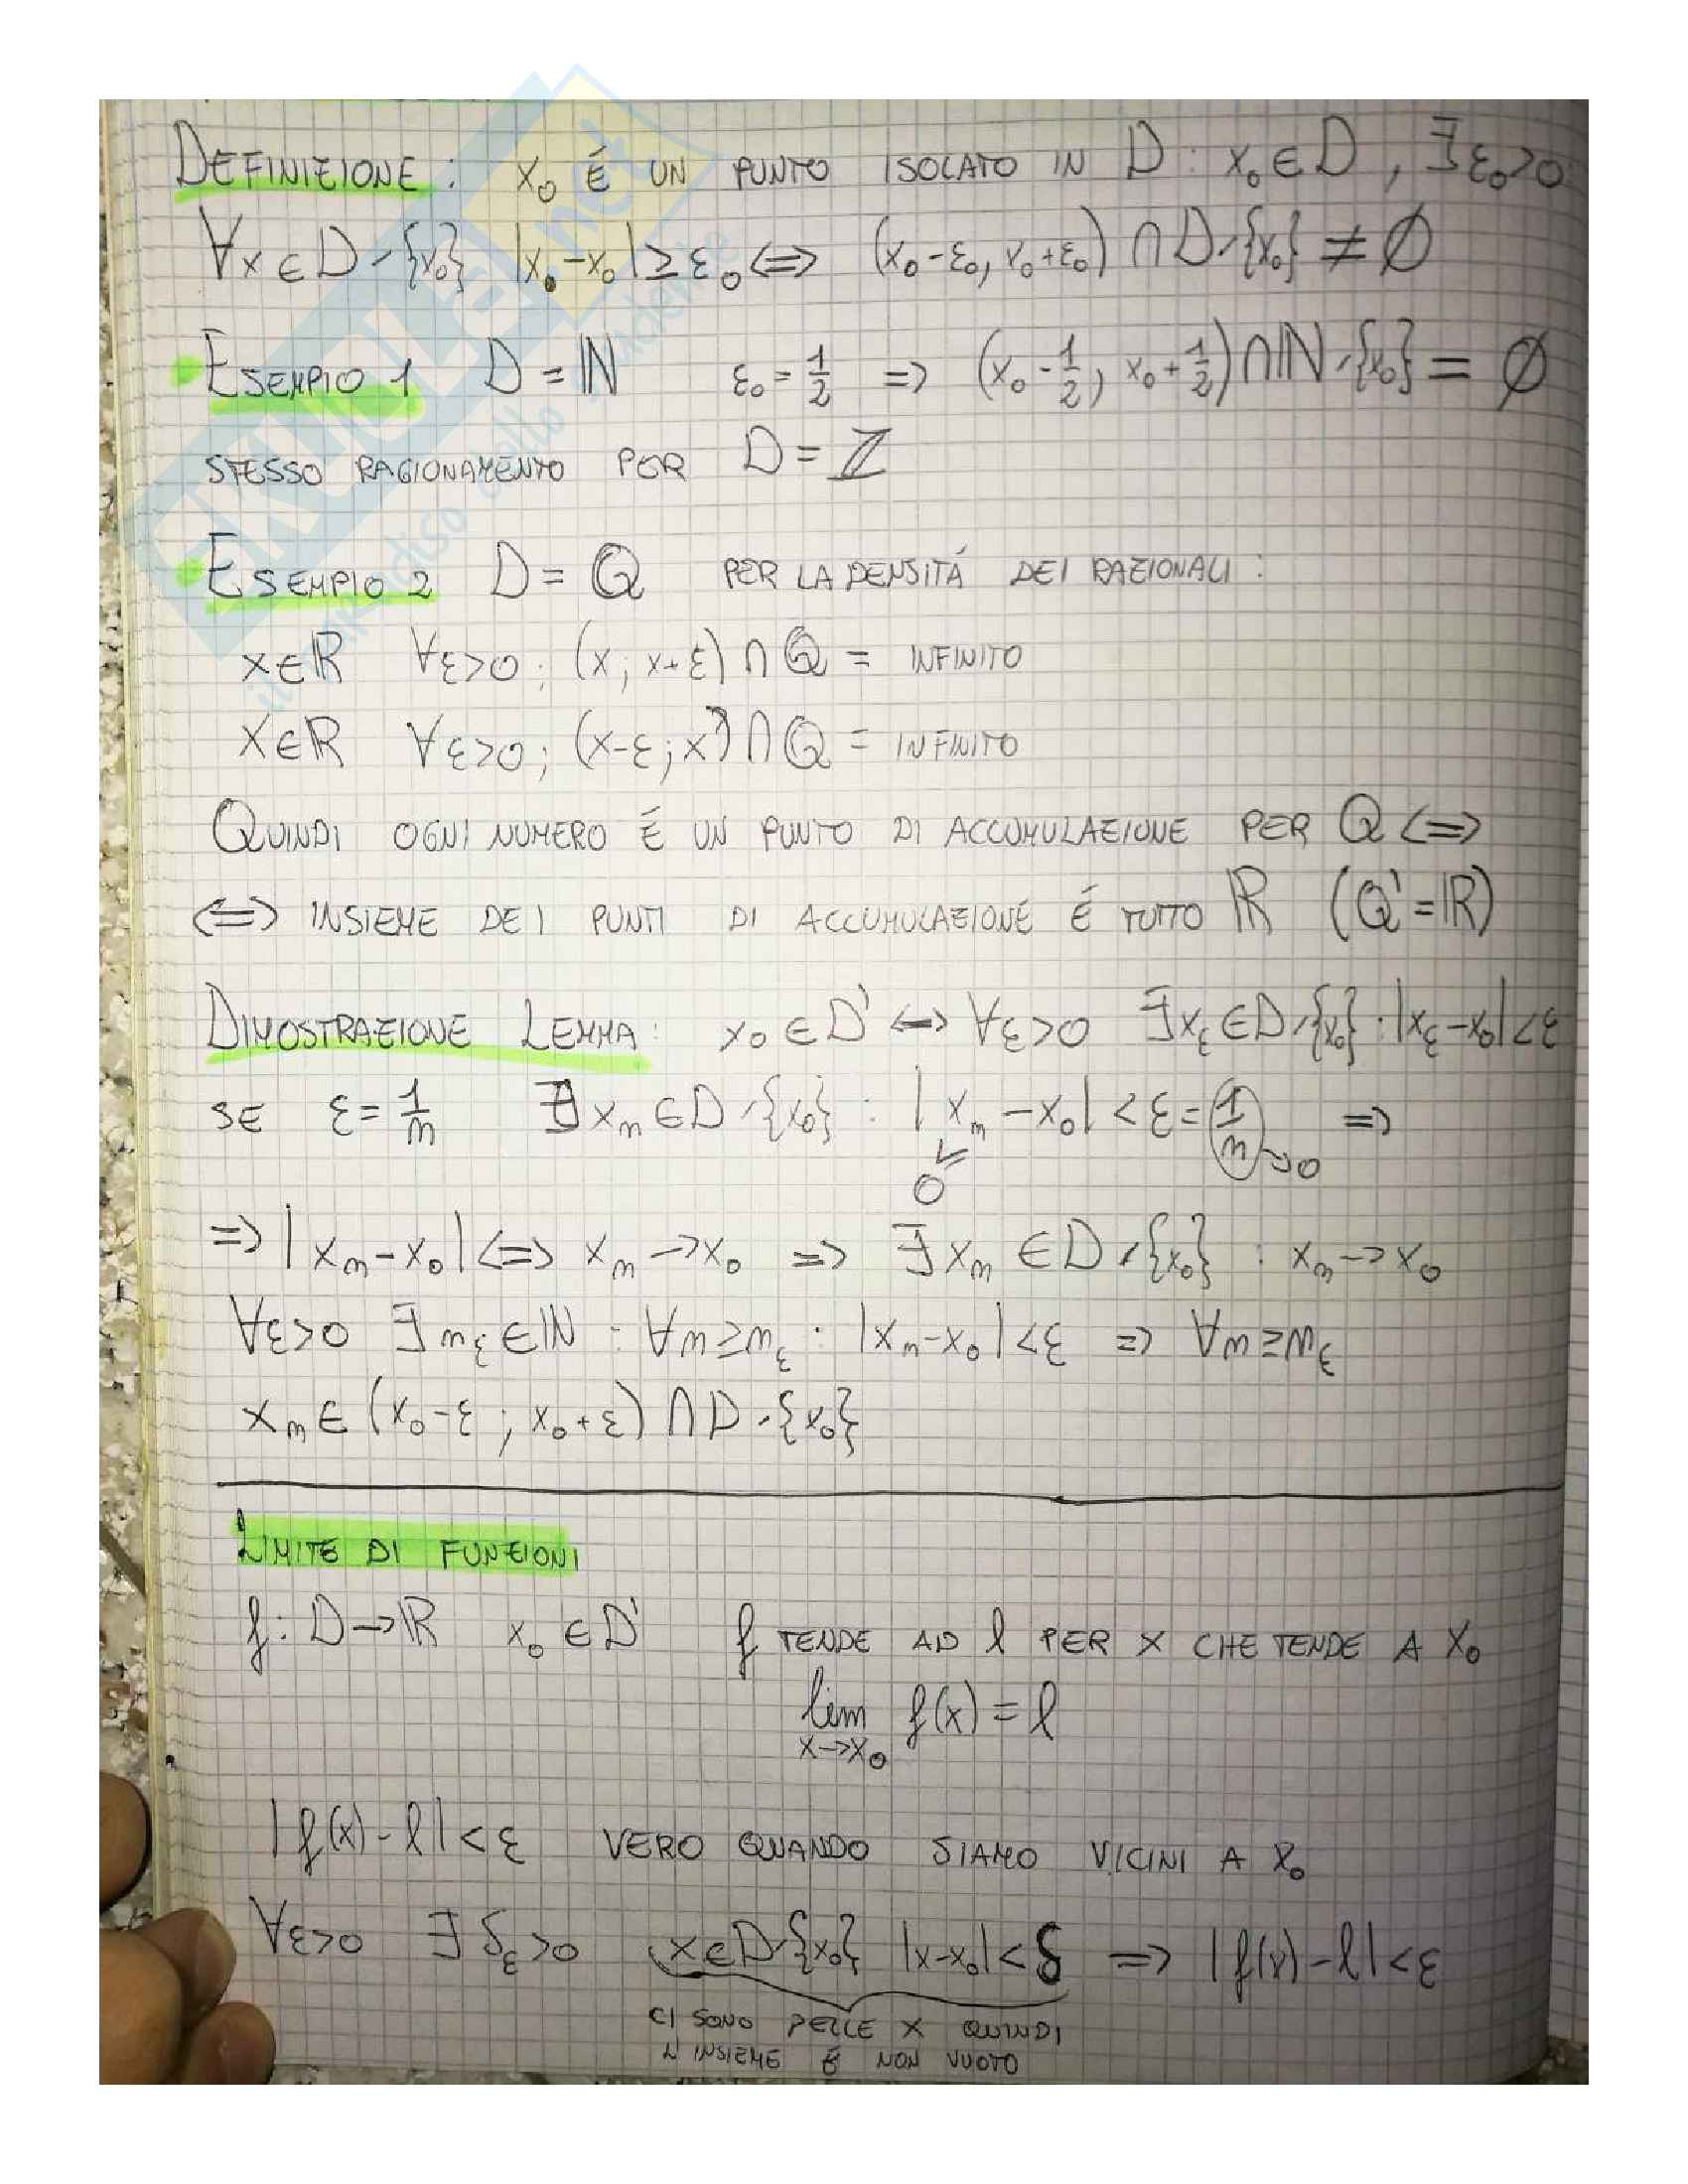 DEFINIZIONE : x₀ É UN PUNTO ISOLATO IN D : x₀ ∈ D , ∃ ε₀>0
∀x ∈ D∖{x₀} |x₀-x₀| ≥ ε₀ <=> (x₀-ε₀, x₀+ε₀) ∩ D∖{x₀} ≠ ∅
ESEMPIO 1 D = ℕ ε₀ = 1/2 => (x₀ - 1/2, x₀ + 1/2) ∩ ℕ∖{x₀} = ∅
STESSO RAGIONAMENTO PER D = ℤ
ESEMPIO 2 D = ℚ PER LA DENSITÁ DEI RAZIONALI :
x∈ℝ ∀ε>0 ; (x ; x+ε) ∩ ℚ = INFINITO
x∈ℝ ∀ε>0 ; (x-ε ; x) ∩ ℚ = INFINITO
QUINDI OGNI NUMERO É UN PUNTO DI ACCUMULAZIONE PER ℚ <=>
<=> INSIEME DEI PUNTI DI ACCUMULAZIONE É TUTTO ℝ (ℚ' = ℝ)
DIMOSTRAZIONE LEMMA : x₀ ∈ D' <-> ∀ε>0 ∃x_ε ∈ D∖{x₀} : |x_ε - x₀| < ε
SE ε = 1/n ∃ x_n ∈ D∖{x₀} : |x_n - x₀| < ε = 1/n →0 =>
0 ≤
=> |x_n - x₀| <=> x_n -> x₀ => ∃ x_n ∈ D∖{x₀} : x_n -> x₀
∀ε>0 ∃ n_ε ∈ ℕ : ∀n ≥ n_ε : |x_n - x₀| < ε => ∀n ≥ n_ε
x_n ∈ (x₀-ε ; x₀+ε) ∩ D∖{x₀}
LIMITE DI FUNZIONI
f : D -> ℝ x₀ ∈ D' f TENDE AD l PER x CHE TENDE A x₀
lim f(x) = l
x->x₀
|f(x) - l| < ε VERO QUANDO SIAMO VICINI A x₀
∀ε>0 ∃ δ_ε>0 x∈D∖{x₀} |x-x₀| < δ => |f(x) - l| < ε
CI SONO DELLE x QUINDI
L'INSIEME É NON VUOTO
SKUOLA.net